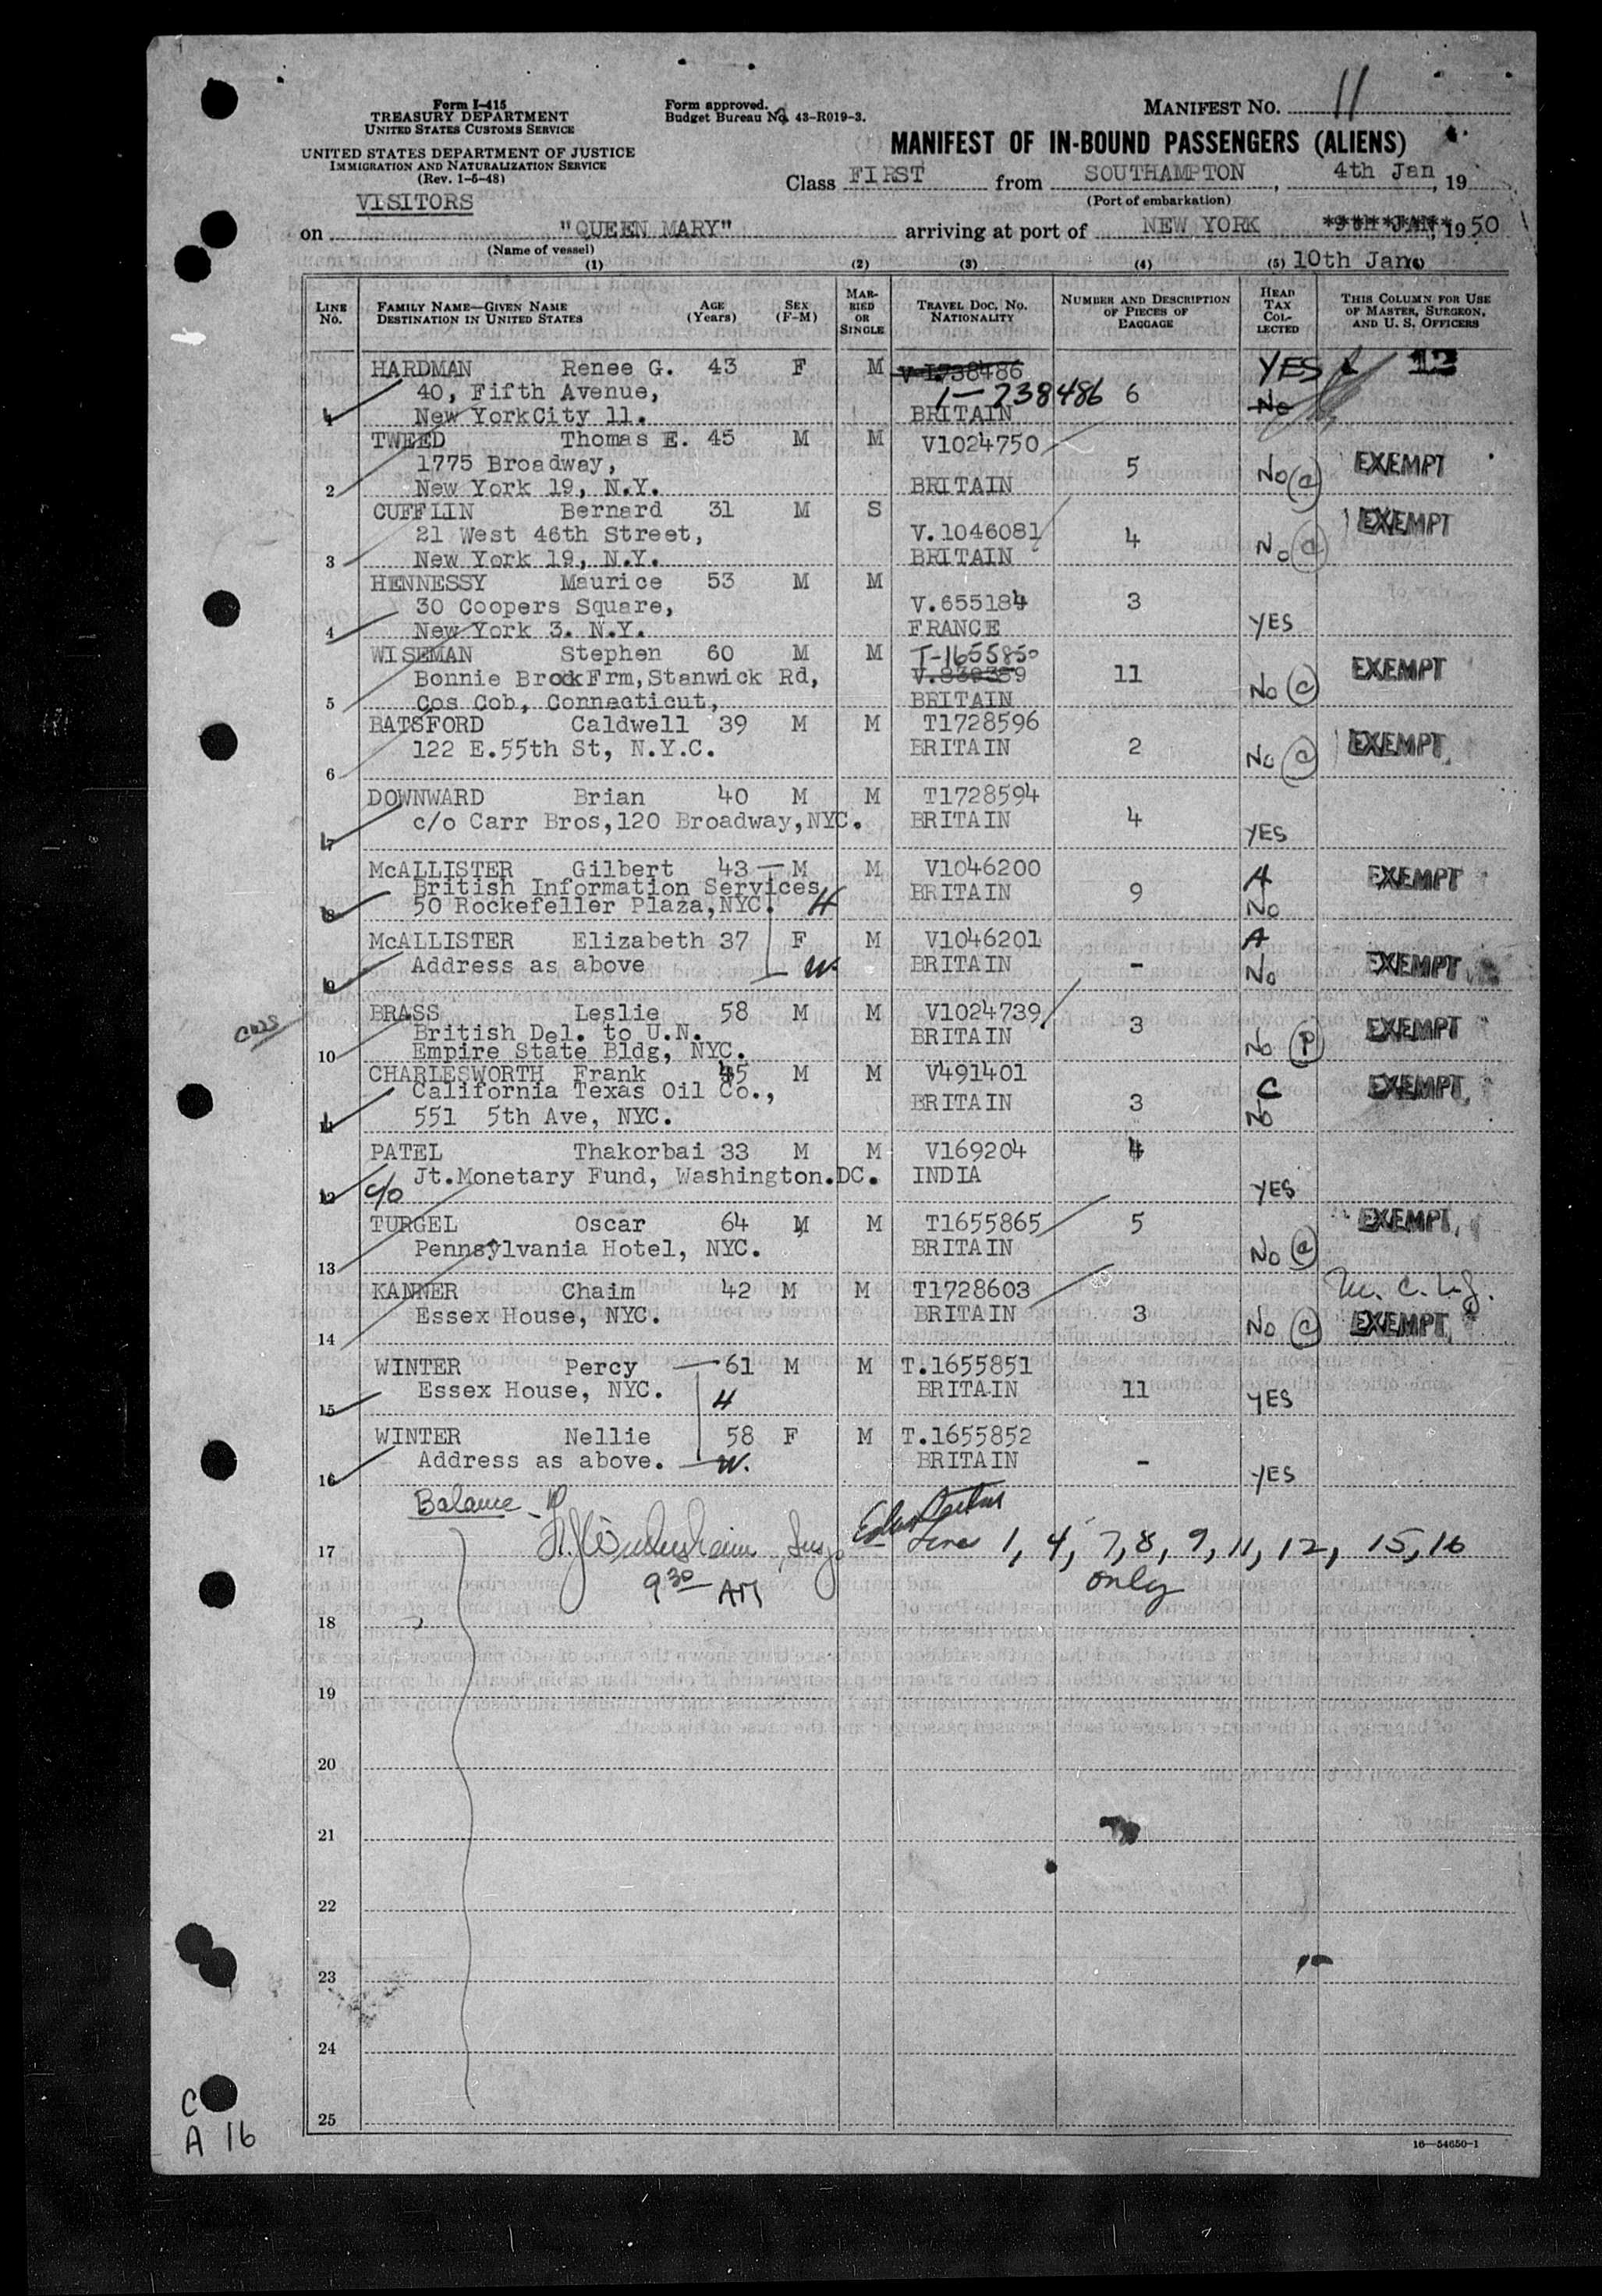 Form I-415
TREASURY DEPARTMENT
UNITED STATES CUSTOMS SERVICE
UNITED STATES DEPARTMENT OF JUSTICE
IMMIGRATION AND NATURALIZATION SERVICE
(Rev. 1-5-48)
Form approved.
Budget Bureau No. 43-R019-3.
MANIFEST NO. 11
MANIFEST OF IN-BOUND PASSENGERS (ALIENS)
Class FIRST from SOUTHAMPTON, 4th Jan, 19
(Port of embarkation)
VISITORS
on "QUEEN MARY" arriving at port of NEW YORK 9th JAN, 1950
(Name of vessel)
10th Jan.
(1) (2) (3) (4) (5) (6)
LINE NO. FAMILY NAME—GIVEN NAME DESTINATION IN UNITED STATES AGE (Years) SEX (F-M) MARRIED OR SINGLE TRAVEL DOC. NO. NATIONALITY NUMBER AND DESCRIPTION OF PIECES OF BAGGAGE HEAD TAX COLLECTED THIS COLUMN FOR USE OF MASTER, SURGEON, AND U. S. OFFICERS
HARDMAN Renee G. 43 F M V-I738486 YES 13
40, Fifth Avenue, 1-738486 6
1 New YorkCity 11. BRITAIN No
TWEED Thomas E. 45 M M V1024750
1775 Broadway, 5 No (c) EXEMPT
2 New York 19, N.Y. BRITAIN
CUFFLIN Bernard 31 M S EXEMPT
21 West 46th Street, V.1046081 4
3 New York 19, N.Y. BRITAIN No (c)
HENNESSY Maurice 53 M M
30 Coopers Square, V.655184 3
4 New York 3. N.Y. FRANCE YES
WISEMAN Stephen 60 M M T-1655850
Bonnie Brook Frm, Stanwick Rd, V.839389 11 EXEMPT
5 Cos Cob, Connecticut, BRITAIN No (c)
BATSFORD Caldwell 39 M M T1728596
122 E.55th St, N.Y.C. BRITAIN 2 No (c) EXEMPT
6
DOWNWARD Brian 40 M M T1728594
c/o Carr Bros,120 Broadway,NYC. BRITAIN 4 YES
7
McALLISTER Gilbert 43 M M V1046200 A EXEMPT
British Information Services, BRITAIN 9
8 50 Rockefeller Plaza,NYC. H No
McALLISTER Elizabeth 37 F M V1046201 A
Address as above W. BRITAIN - No EXEMPT
9
cws
BRASS Leslie 58 M M V1024739
British Del. to U.N. BRITAIN 3 EXEMPT
10 Empire State Bldg, NYC. No (P)
CHARLESWORTH Frank 45 M M V491401 C EXEMPT
California Texas Oil Co., BRITAIN 3
11 551 5th Ave, NYC. No
PATEL Thakorbai 33 M M V169204 4
12 c/o Jt.Monetary Fund, Washington.DC. INDIA YES
TURGEL Oscar 64 M M T1655865 5 EXEMPT
Pennsylvania Hotel, NYC. BRITAIN No (c)
13
KANNER Chaim 42 M M T1728603
Essex House, NYC. BRITAIN 3 No (c) EXEMPT
14
WINTER Percy 61 M M T.1655851
Essex House, NYC. H BRITAIN 11 YES
15
WINTER Nellie 58 F M T.1655852
Address as above. W. BRITAIN - YES
16
Balance
17 Lines 1, 4, 7, 8, 9, 11, 12, 15, 16
9 30 AM only
18
19
20
21
22
23
24
25
C
A 16
16—54650-1